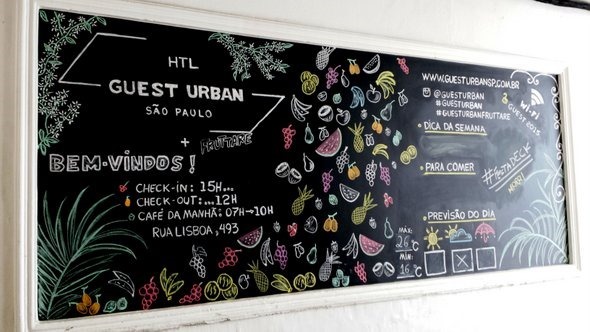 HTL
GUEST URBAN
SÃO PAULO
+ FRUTTARE
BEM-VINDOS!
CHECK-IN: 15H...
CHECK-OUT:...12H
CAFÉ DA MANHÃ: 07H→10H
RUA LISBOA, 493
WWW.GUESTURBANSP.COM.BR
@GUESTURBAN
#GUESTURBAN
#GUESTURBANFRUTTARE
WI-FI
GUEST2015
DICA DA SEMANA
PARA COMER
PREVISÃO DO DIA
MAX:
26°C
MIN:
16°C